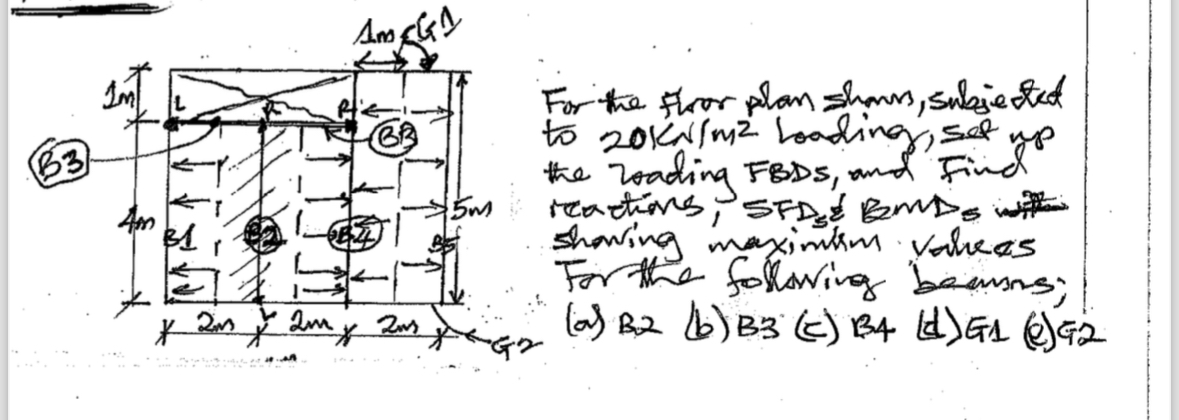 1m G1
1m
L R R
B3
B3
4m
5m
B1 B2 B4 B5
2m 2m 2m
G2
For the floor plan shown, subjected
to 20KN/m2 loading, set up
the loading FBDs, and find
reactions, SFDs & BMDs
showing maximum values
For the following beams;
(a) B2 (b) B3 (c) B4 (d) G1 (e) G2